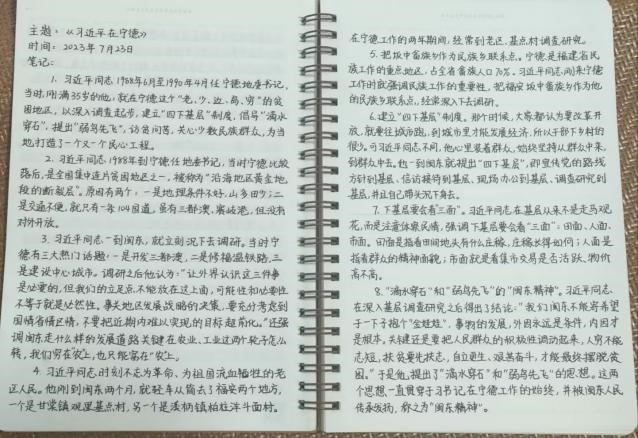 主题：《习近平在宁德》
时间：2023年7月23日
笔记：
1. 习近平同志1988年6月至1990年4月任宁德地委书记，
当时,刚满35岁的他,就在宁德这个“老、少、边、岛、穷”的贫
困地区,以深入调查起步,建立“四下基层”制度,倡导“滴水
穿石”,提出“弱鸟先飞”,访贫问苦,关心少数民族群众,为当
地打造了一个又一个民心工程。
2. 习近平同志1988年到宁德任地委书记,当时宁德比较
落后,是全国集中连片贫困地区之一,被称为“沿海地区黄金地
段的断裂层”。原因有两个：一是地理条件不好,山多田少;二
是交通不便,就只有一条104国道,虽有三都澳、赛岐港,但没有
对外开放。
3. 习近平同志一到闽东,就立刻沉下去调研。当时宁
德有三大热门话题：一是开发三都澳,二是修福温铁路,三
是建设中心城市。调研之后他认为：“让外界认识这三件事
是必要的,但我们的立足点不能放在这上面,可能性和必要性
不等于就是必然性。事关地区发展战略的决策,要充分考虑到
国情省情区情,不要把近期内难以实现的目标超前化。”还强
调闽东走什么样的发展道路关键在农业、工业这两个轮子怎么
转,我们穷在“农”上,也只能富在“农”上。
4. 习近平同志时刻不忘为革命、为祖国流血牺牲的老
区人民。他刚到闽东两个月,就轻车从简去了福安两个地方,
一个是甘棠镇观里基点村,另一个是溪柄镇柏柱洋斗面村。
在宁德工作的两年期间,经常到老区、基点村调查研究。
5. 把坂中畲族乡作为民族乡联系点。宁德是福建省民
族工作的重点地区,占全省畲族人口70%。习近平同志刚来宁德
工作时就强调民族工作的重要性,把福安坂中畲族乡作为他
的民族乡联系点,经常深入下去调研。
6. 建立“四下基层”制度。那个时候,大家都认为要改革开
放,就要往城市跑,到城市里才能发展经济,所以干部下乡村的
很少。可习近平同志不同,他心里装着群众,始终坚持从群众中来,
到群众中去。他一到闽东就提出“四下基层”,即宣传党的路线
方针到基层、信访接待到基层、现场办公到基层、调查研究到
基层,并且自己带头沉下身去。
7. 下基层要会看“三面”。习近平同志在基层从来不是走马观
花,而是注意体察民情,强调下基层要会看“三面”：田面、人面、
市面。田面是指看田间地头有什么庄稼、庄稼长得如何;人面是
指看群众的精神面貌;市面就是看集市交易是否活跃、物价
高不高。
8. “滴水穿石”和“弱鸟先飞”的“闽东精神”。习近平同志,
在深入基层调查研究之后得出3结论：“我们闽东不能寄希望
于一下子抱个“金娃娃”,事物的发展,外因永远是条件,内因才
是根本,关键还是要把人民群众的积极性调动起来,人穷不能
志短,扶贫要先扶志,自立更生、艰苦奋斗,才能最终摆脱贫
困。”于是他提出了“滴水穿石”和“弱鸟先飞”的思想。这两
个思想一直贯穿于习书记在宁德工作的始终,并被闽东人民
传承发扬,称之为“闽东精神”。